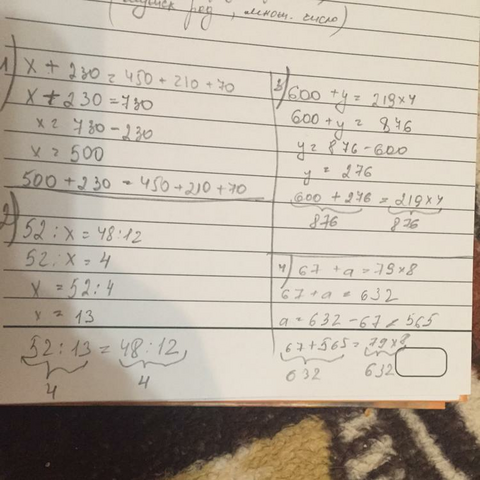 род, множ. число)
1) x + 230 = 450 + 210 + 70
x + 230 = 730
x = 730 - 230
x = 500
500 + 230 = 450 + 210 + 70
2) 52 : x = 48 : 12
52 : x = 4
x = 52 : 4
x = 13
52 : 13 = 48 : 12
4 4
3) 600 + y = 219 x 4
600 + y = 876
y = 876 - 600
y = 276
600 + 276 = 219 x 4
876 876
4) 67 + a = 79 x 8
67 + a = 632
a = 632 - 67 = 565
67 + 565 = 79 x 8
632 632